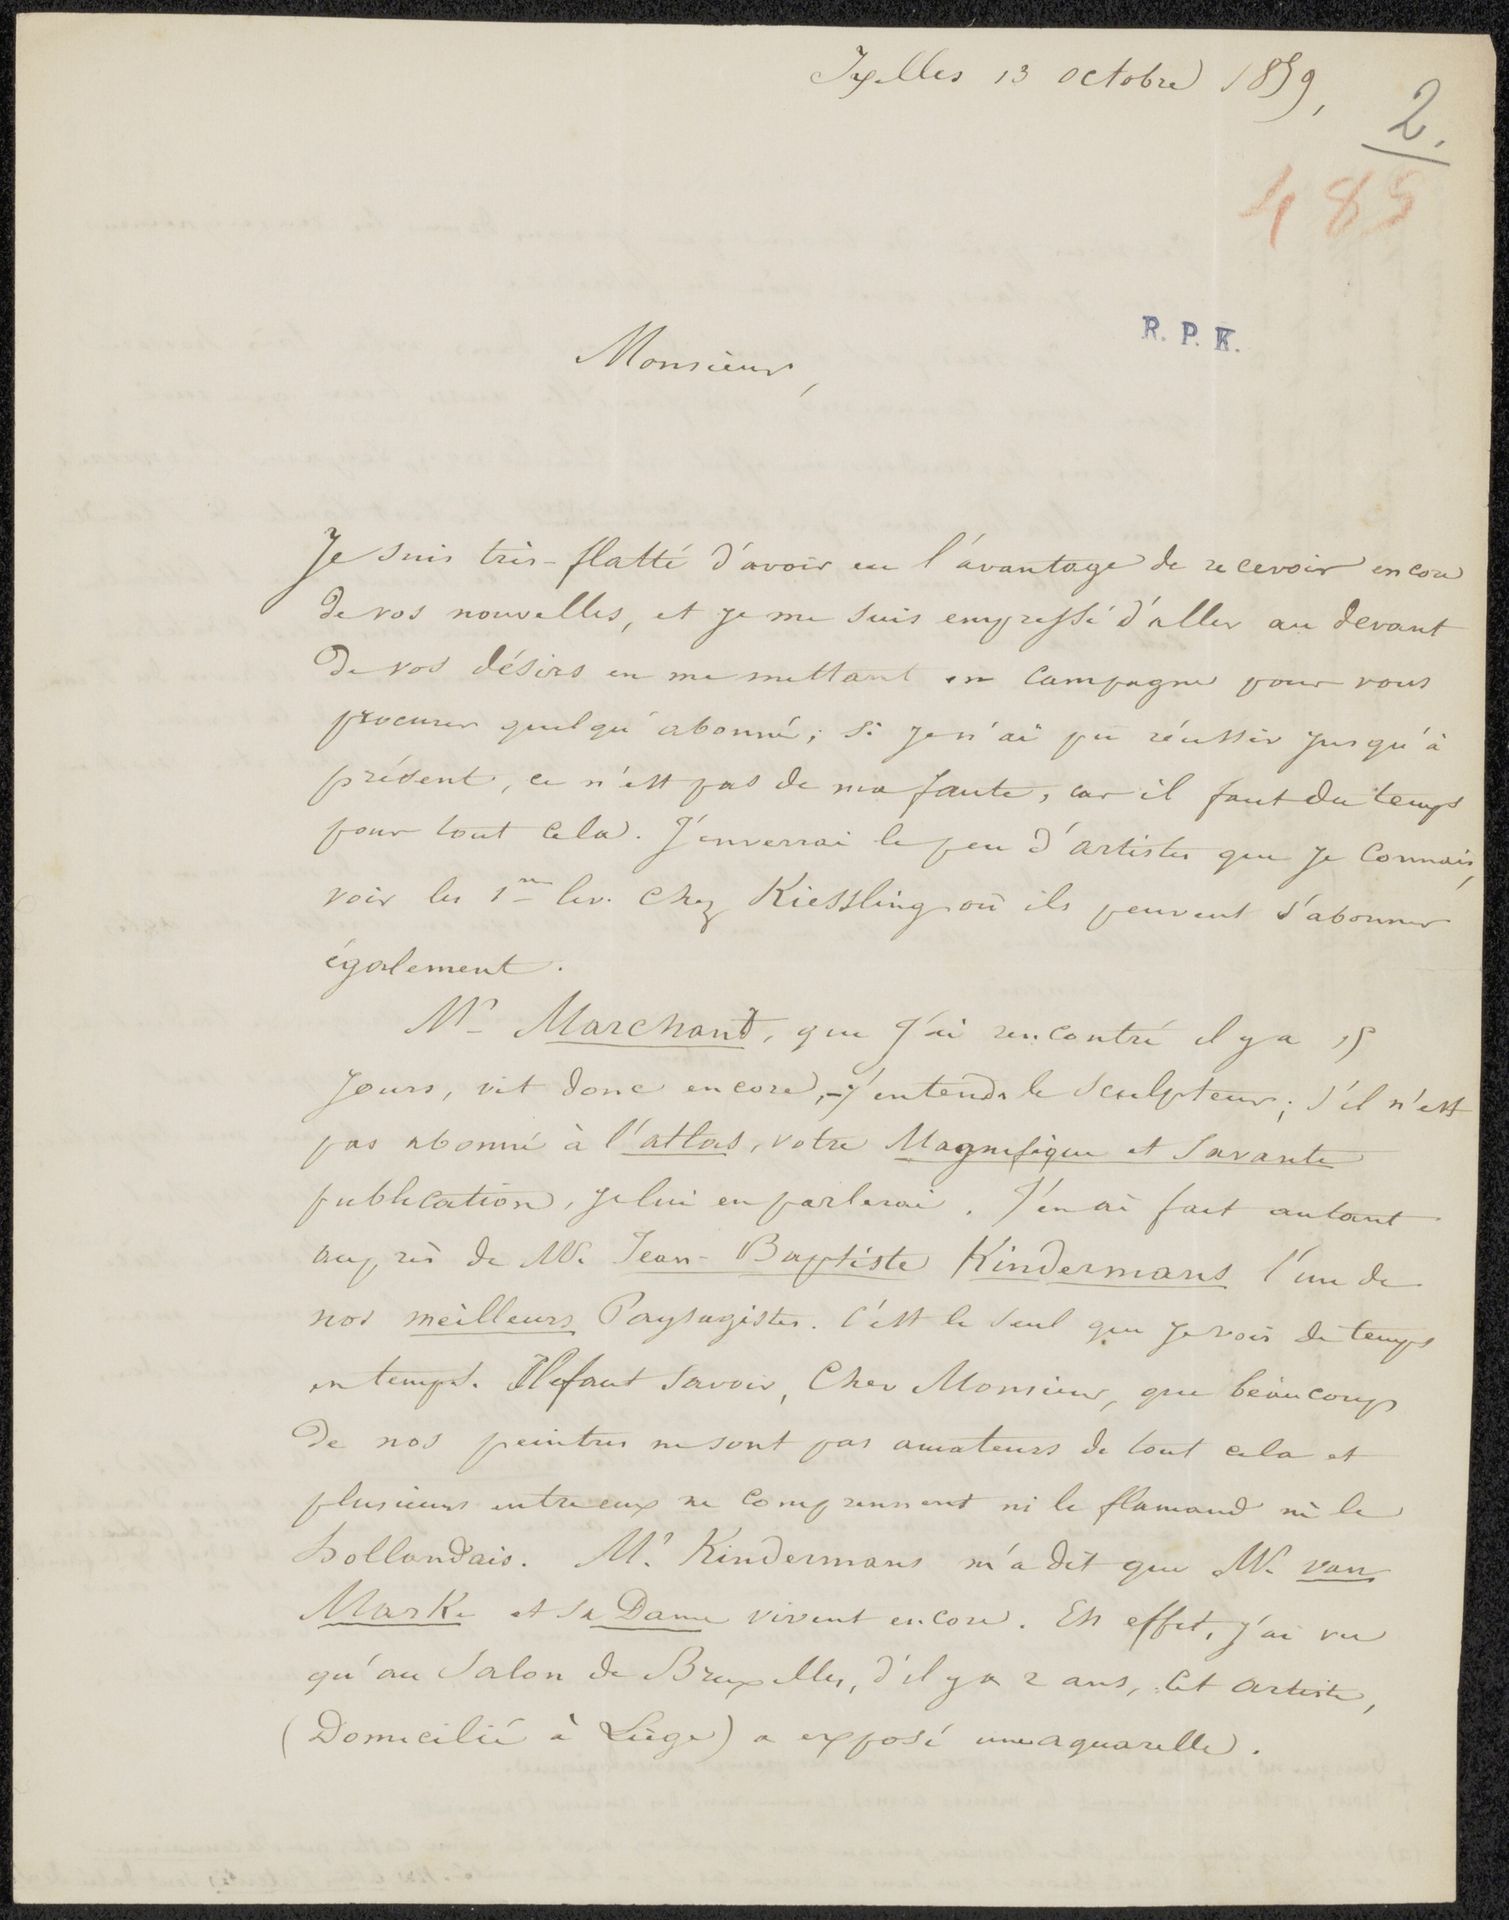 Ixelles 13 octobre 1859,
2.
485
R. P. K.
Monsieur,
Je suis très-flatté d'avoir eu l'avantage de recevoir encore
de vos nouvelles, et je me suis empressé d'aller au devant
de vos désirs en me mettant en campagne pour vous
procurer quelqu'abonné; si je n'ai pu réussir jusqu'à
présent, ce n'est pas de ma faute, car il faut du temps
pour tout cela. J'enverrai le peu d'artistes que je connais,
voir les 1res liv. chez Kiessling où ils peuvent s'abonner
également.
Mr Marchant, que j'ai rencontré il y a 15
jours, vit donc encore, - j'entends le sculpteur; s'il n'est
pas abonné à l'atlas, votre Magnifique et Savante
publication, je lui en parlerai. J'en ai fait autant
auprès de Mr. Jean-Baptiste Kindermans l'un de
nos meilleurs Paysagistes. C'est le seul que je vois de temps
en temps. Il faut savoir, Cher Monsieur, que beaucoup
de nos peintres ne sont pas amateurs de tout cela et
plusieurs entre eux ne comprennent ni le flamand ni le
hollandais. Mr. Kindermans m'a dit que Mr. van
Marke et sa Dame vivent encore. En effet, j'ai vu
qu'au Salon de Bruxelles, d'il y a 2 ans, cet artiste,
(Domicilié à Liège) a exposé une aquarelle.